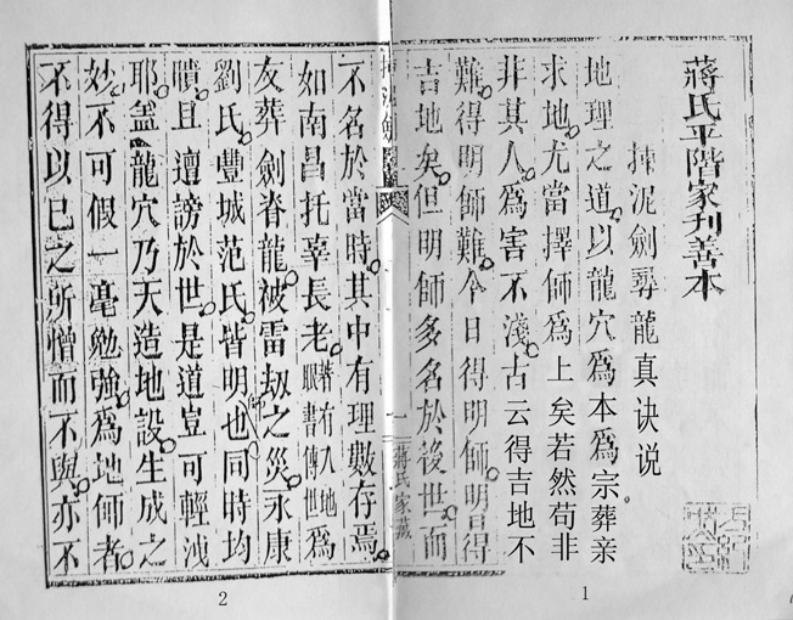 蔣氏平階家刋善本
揀泥劍尋龍真诀说
地理之道以龍穴爲本爲宗葬亲
求地尤當擇师爲上矣若然苟非
非其人爲害不淺古云得吉地不
難得明师難今日得明师明日得
吉地矣但明师多名於後世而
泥劍
一
蔣氏家藏
不名於當時其中有理數存焉
如南昌托辜長老著有入地眼書傳世爲
友葬劍脊龍被雷劫之災永康
劉氏豐城范氏皆明师也同時均
瞶且遭謗於世是道豈可輕洩
耶盖龍穴乃天造地設生成之
妙不可假一毫勉強爲地师者
不得以已之所憎而不與亦不
2
1